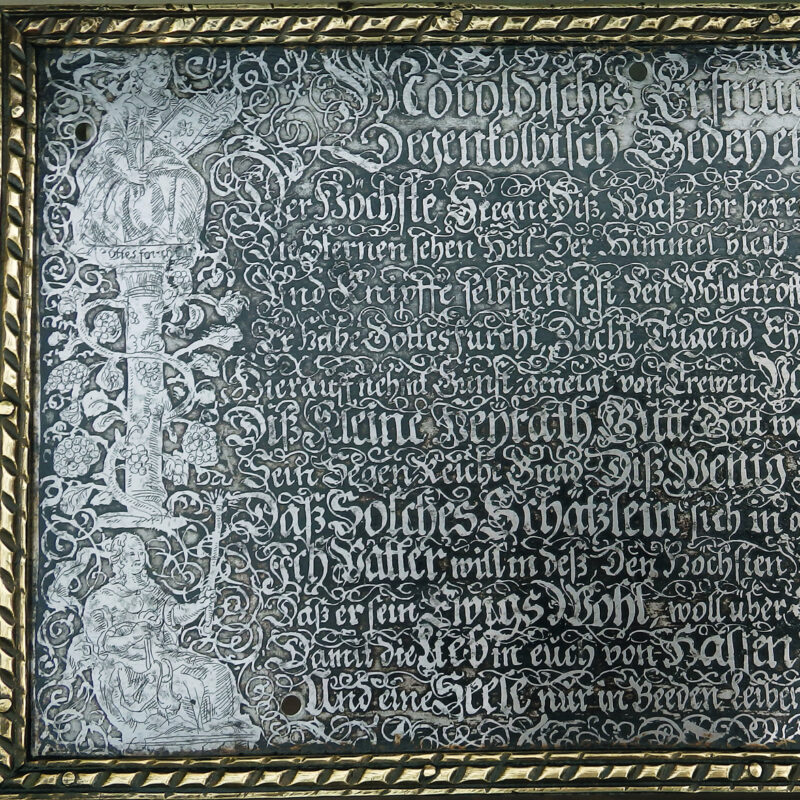 Noroldisches Erfreu
Degenkolbisch Gedeye
Der Höchste Seegne Diß, Waß ihr here
Die Sternen sehen Heil Der Himmel bleib
Und Knüpffe selbsten fest den Wolgetroff
Er habe Gottesfurcht, Zucht, Tugend Eh
Hierauff nehmt Gunst geneigt von Trewen
Diß Kleine Heyrath Gutt Gott wo
Sein Segen Reiche Gnad Diß Wenig
Daß Solches Schätzlein sich in
Ich Vatter, will in deß Den Höchsten
Daß er sein Ewigs Wohl woll über
Damit die Lieb in euch von Hassen
Und eine Seele nur in Beeden Leiber
Gottesforcht